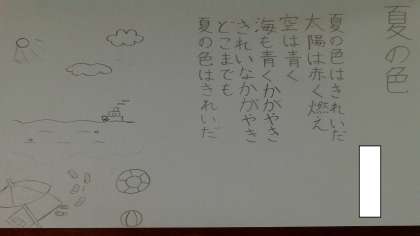 夏の色
夏の色はきれいだ
太陽は赤く燃え
空は青く
海も青くかがやき
きれいなかがやき
どこまでも
夏の色はきれいだ